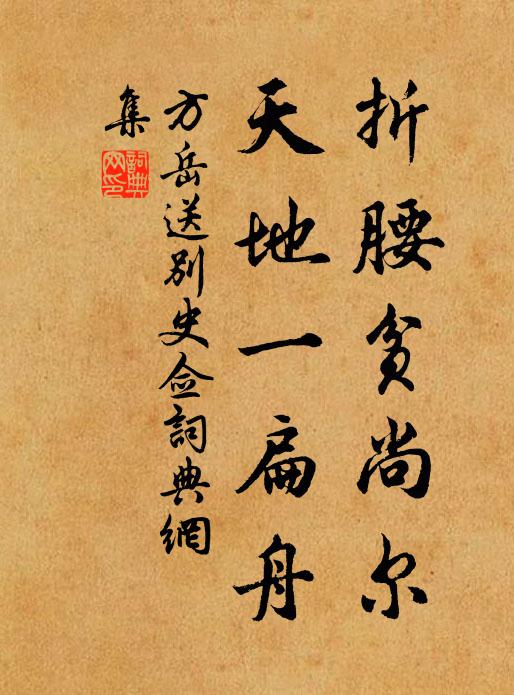 折腰贫尚尔
天地一扁舟
方岳送别史佥詞典網
集
詞典
网印